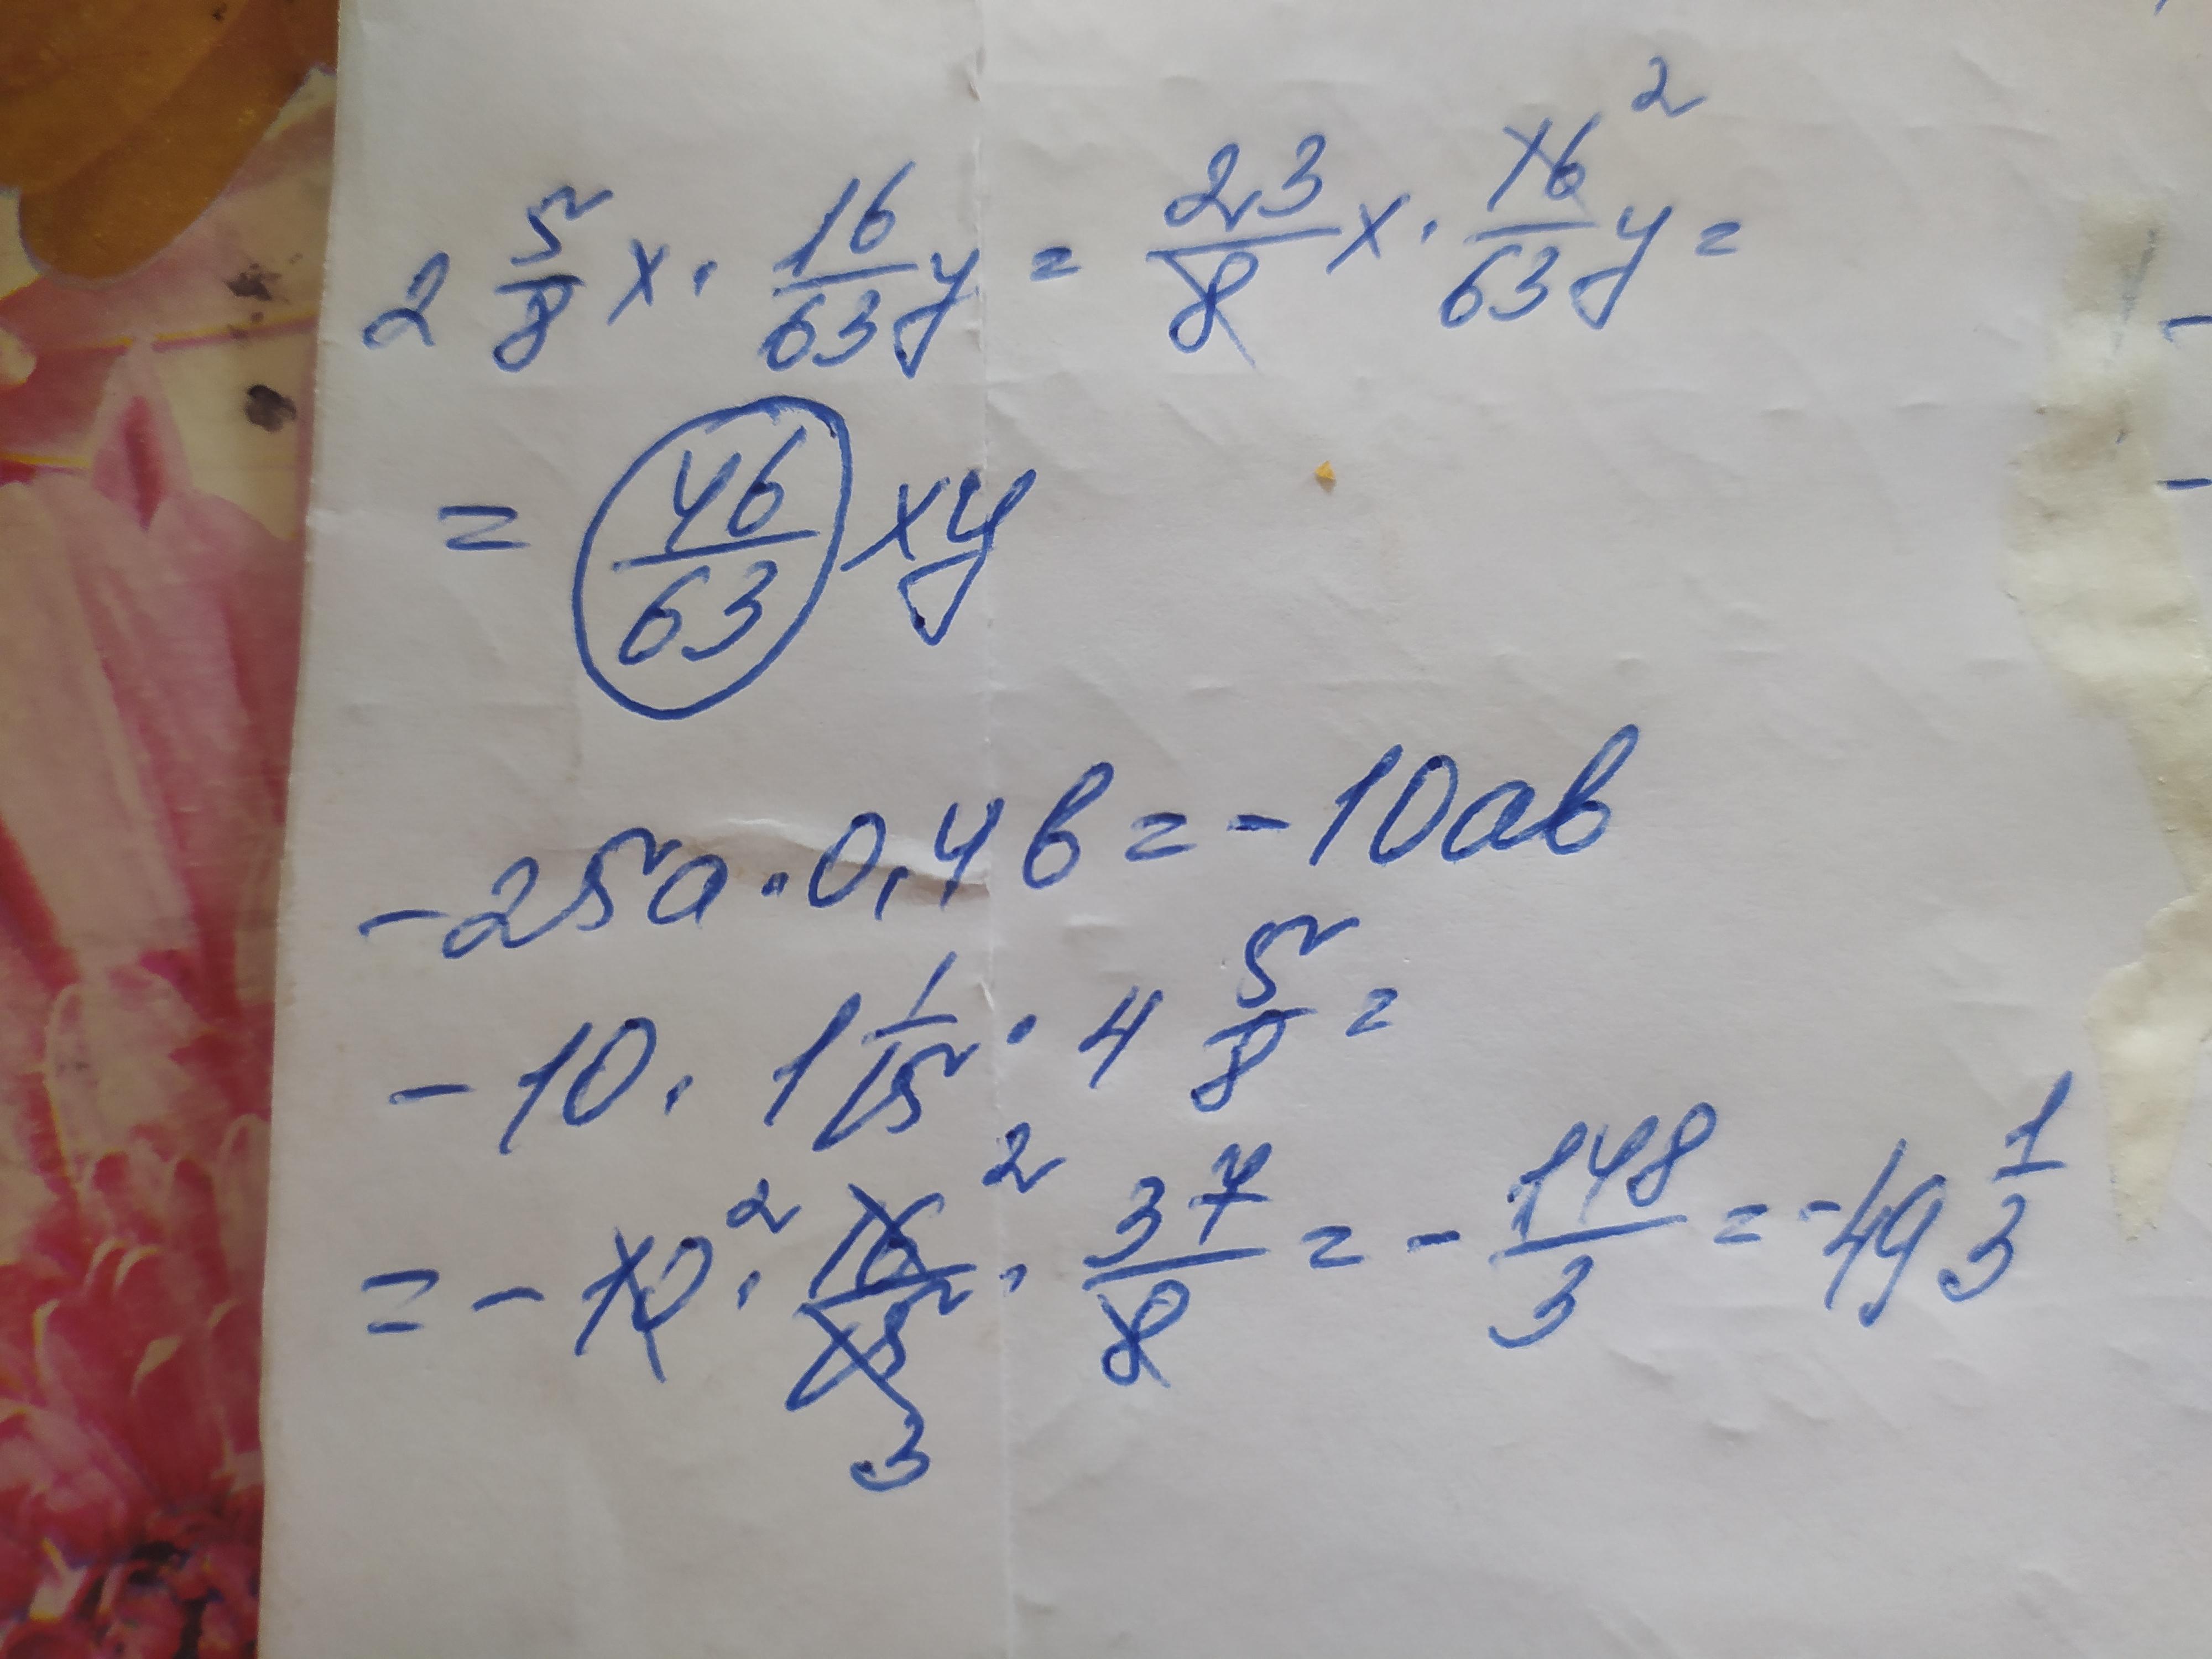 2 5/8 x · 16/63 y = 23/8 x · 16/63 y = 2
= 46/63 xy
-25a · 0,4b = -10ab
-10 · 1 1/15 · 4 5/8 =
= -10 2 · 16/15 2 3 · 37/8 = -148/3 = -49 1/3